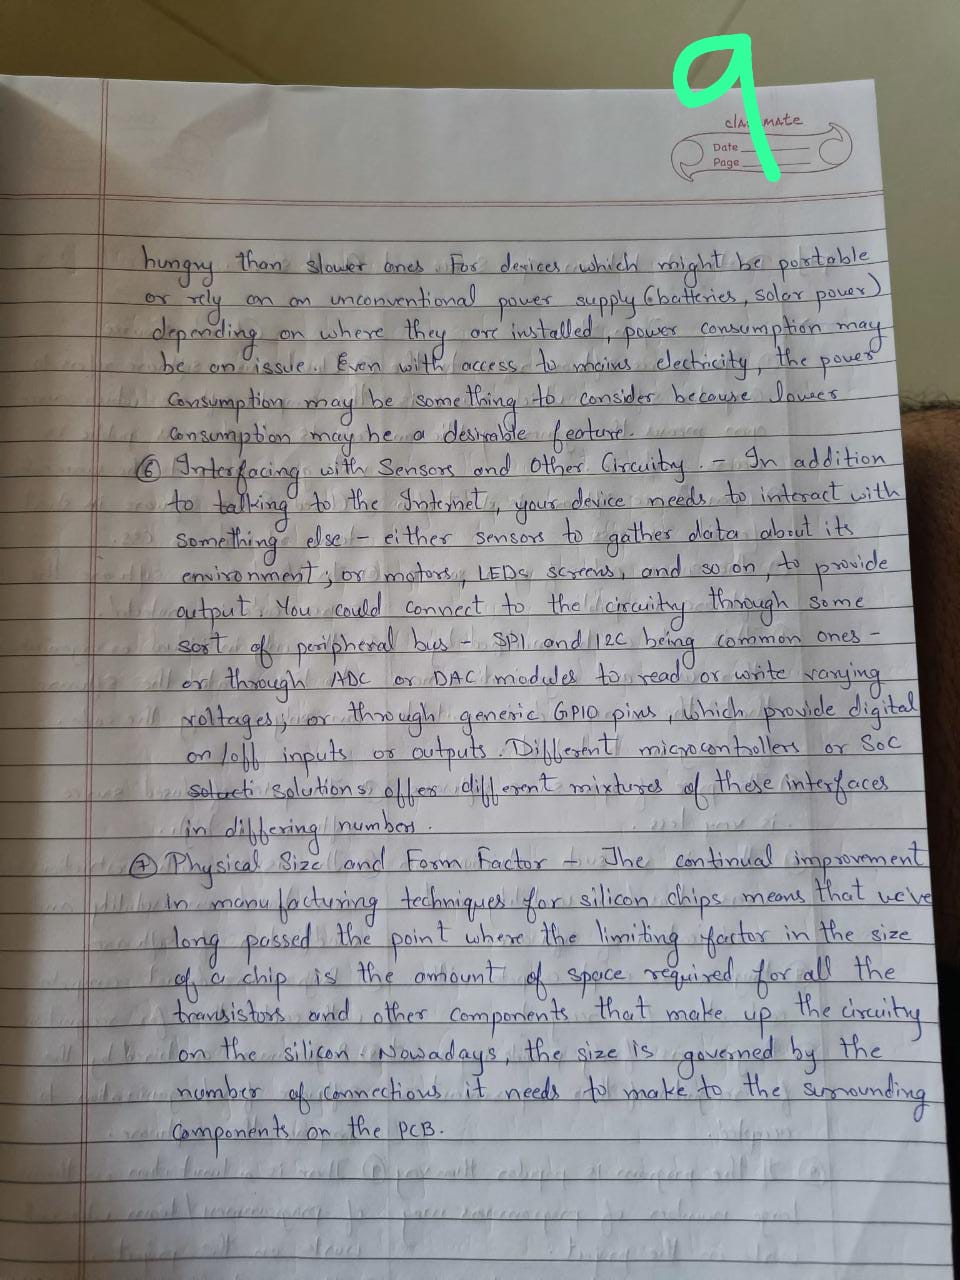 9
classmate
Date
Page
hungry than slower ones. For devices which might be portable
or rely on an unconventional power supply (batteries, solar power)
depending on where they are installed, power consumption may
be an issue. Even with access to mains electricity, the power
consumption may be something to consider because lower
consumption may be a desirable feature.
⑥ Interfacing with Sensors and Other Circuitry. - In addition
to talking to the Internet, your device needs to interact with
something else - either sensors to gather data about its
environment; or motors, LEDs screens, and so on, to provide
output. You could connect to the circuitry through some
sort of peripheral bus - SPI and I2C being common ones -
or through ADC or DAC modules to read or write varying
voltages; or through generic GPIO pins, which provide digital
on/off inputs or outputs. Different microcontrollers or SoC
soluti solutions offer different mixtures of these interfaces
in differing numbers.
⑦ Physical Size and Form Factor - The continual improvement
in manufacturing techniques for silicon chips means that we've
long passed the point where the limiting factor in the size
of a chip is the amount of space required for all the
transistors and other components that make up the circuitry
on the silicon. Nowadays, the size is governed by the
number of connections it needs to make to the surrounding
components on the PCB.